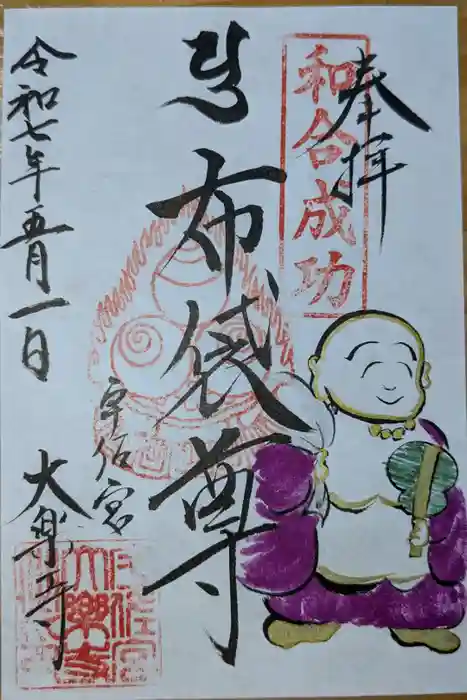 奉拝
和合成功
布袋尊
令和七年五月一日
宇佐宮
大楽寺